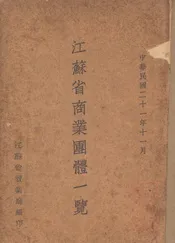 中華民國二十一年十一月
江蘇省商業團體一覽